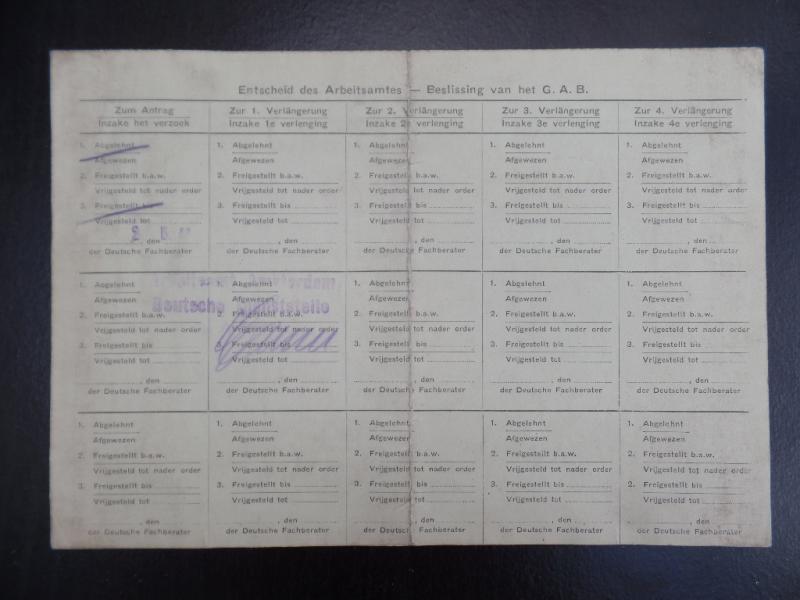 Entscheid des Arbeitsamtes — Beslissing van het G. A. B.
Zum Antrag
Inzake het verzoek
Zur 1. Verlängerung
Inzake 1e verlenging
Zur 2. Verlängerung
Inzake 2e verlenging
Zur 3. Verlängerung
Inzake 3e verlenging
Zur 4. Verlängerung
Inzake 4e verlenging
1. Abgelehnt
Afgewezen
2. Freigestellt b.a.w.
Vrijgesteld tot nader order
3. Freigestellt bis
Vrijgesteld tot
, den
der Deutsche Fachberater
1. Abgelehnt
Afgewezen
2. Freigestellt b.a.w.
Vrijgesteld tot nader order
3. Freigestellt bis
Vrijgesteld tot
, den
der Deutsche Fachberater
1. Abgelehnt
Afgewezen
2. Freigestellt b.a.w.
Vrijgesteld tot nader order
3. Freigestellt bis
Vrijgesteld tot
, den
der Deutsche Fachberater
1. Abgelehnt
Afgewezen
2. Freigestellt b.a.w.
Vrijgesteld tot nader order
3. Freigestellt bis
Vrijgesteld tot
, den
der Deutsche Fachberater
1. Abgelehnt
Afgewezen
2. Freigestellt b.a.w.
Vrijgesteld tot nader order
3. Freigestellt bis
Vrijgesteld tot
, den
der Deutsche Fachberater
Amsterdam
Deutsche
1. Abgelehnt
Afgewezen
2. Freigestellt b.a.w.
Vrijgesteld tot nader order
3. Freigestellt bis
Vrijgesteld tot
, den
der Deutsche Fachberater
1. Abgelehnt
Afgewezen
2. Freigestellt b.a.w.
Vrijgesteld tot nader order
3. Freigestellt bis
Vrijgesteld tot
, den
der Deutsche Fachberater
1. Abgelehnt
Afgewezen
2. Freigestellt b.a.w.
Vrijgesteld tot nader order
3. Freigestellt bis
Vrijgesteld tot
, den
der Deutsche Fachberater
1. Abgelehnt
Afgewezen
2. Freigestellt b.a.w.
Vrijgesteld tot nader order
3. Freigestellt bis
Vrijgesteld tot
, den
der Deutsche Fachberater
1. Abgelehnt
Afgewezen
2. Freigestellt b.a.w.
Vrijgesteld tot nader order
3. Freigestellt bis
Vrijgesteld tot
, den
der Deutsche Fachberater
1. Abgelehnt
Afgewezen
2. Freigestellt b.a.w.
Vrijgesteld tot nader order
3. Freigestellt bis
Vrijgesteld tot
, den
der Deutsche Fachberater
1. Abgelehnt
Afgewezen
2. Freigestellt b.a.w.
Vrijgesteld tot nader order
3. Freigestellt bis
Vrijgesteld tot
, den
der Deutsche Fachberater
1. Abgelehnt
Afgewezen
2. Freigestellt b.a.w.
Vrijgesteld tot nader order
3. Freigestellt bis
Vrijgesteld tot
, den
der Deutsche Fachberater
1. Abgelehnt
Afgewezen
2. Freigestellt b.a.w.
Vrijgesteld tot nader order
3. Freigestellt bis
Vrijgesteld tot
, den
der Deutsche Fachberater
1. Abgelehnt
Afgewezen
2. Freigestellt b.a.w.
Vrijgesteld tot nader order
2. Freigestellt bis
Vrijgesteld tot
, den
der Deutsche Fachberater